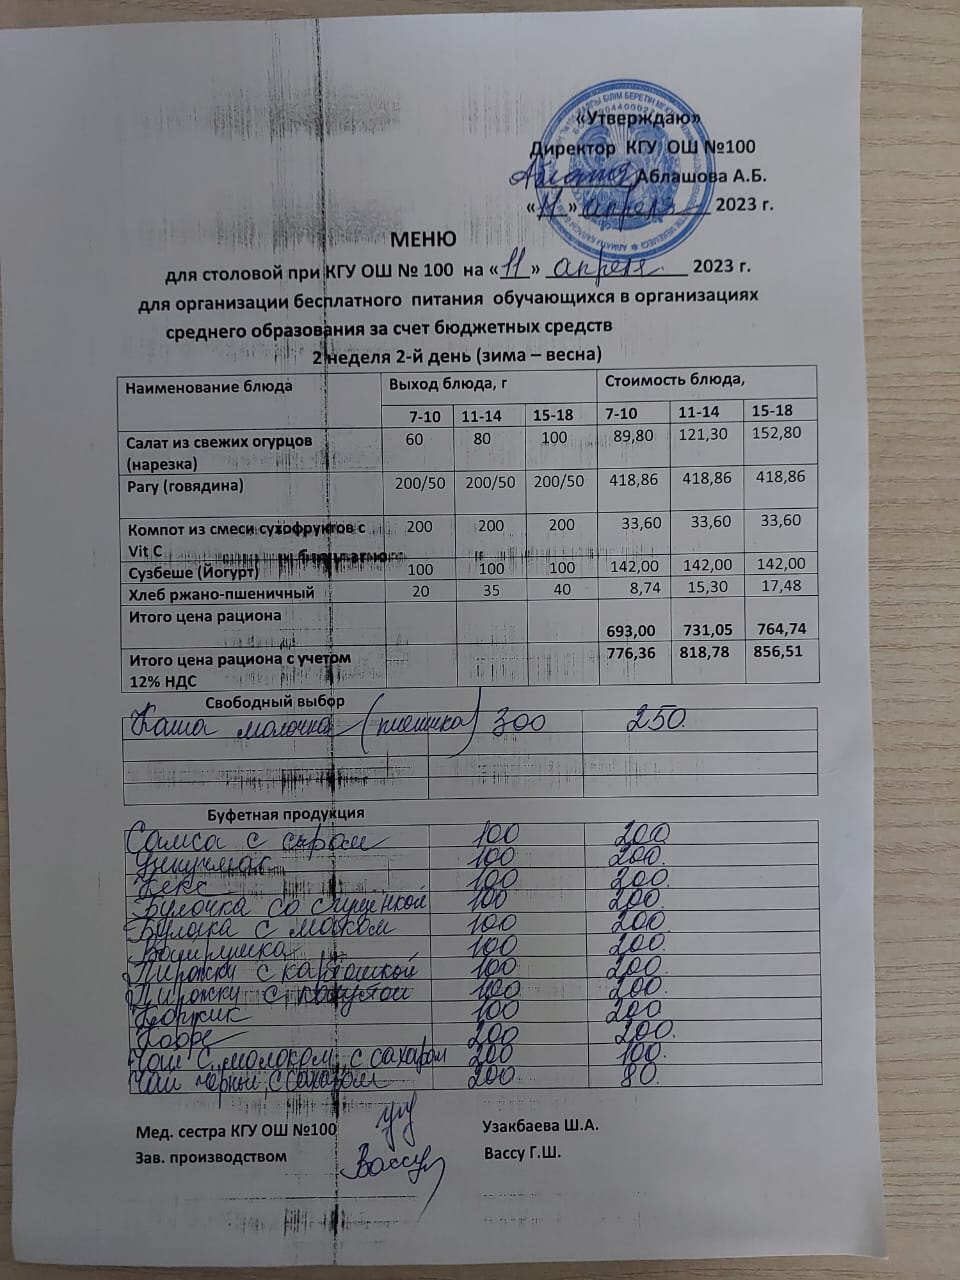 «Утверждаю»
Директор КГУ ОШ №100
Аблашова А.Б.
«11» апреля 2023 г.
МЕНЮ
для столовой при КГУ ОШ № 100 на «11» апреля 2023 г.
для организации бесплатного питания обучающихся в организациях
среднего образования за счет бюджетных средств
2 неделя 2-й день (зима – весна)
Наименование блюда Выход блюда, г Стоимость блюда,
7-10 11-14 15-18 7-10 11-14 15-18
Салат из свежих огурцов 60 80 100 89,80 121,30 152,80
(нарезка)
Рагу (говядина) 200/50 200/50 200/50 418,86 418,86 418,86
Компот из смеси сухофруктов с 200 200 200 33,60 33,60 33,60
Vit C
Сузбеше (Йогурт) 100 100 100 142,00 142,00 142,00
Хлеб ржано-пшеничный 20 35 40 8,74 15,30 17,48
Итого цена рациона
693,00 731,05 764,74
Итого цена рациона с учетом 776,36 818,78 856,51
12% НДС
Свободный выбор
Каша молочная 300 250.
Буфетная продукция
Самса с сыром 100 200
100 200.
Кекс 100 200.
Булочка со сгущенкой 100 200.
Булочка с маком 100 200
100 200.
Пирожки с картошкой 100 200.
Пирожки с капустой 100 200.
Коржик 100 200
Кофе 200 200.
Чай с молоком, с сахаром 200 100.
Чай черный с сахаром 200 80.
Мед. сестра КГУ ОШ №100 Узакбаева Ш.А.
Зав. производством Вассу Вассу Г.Ш.